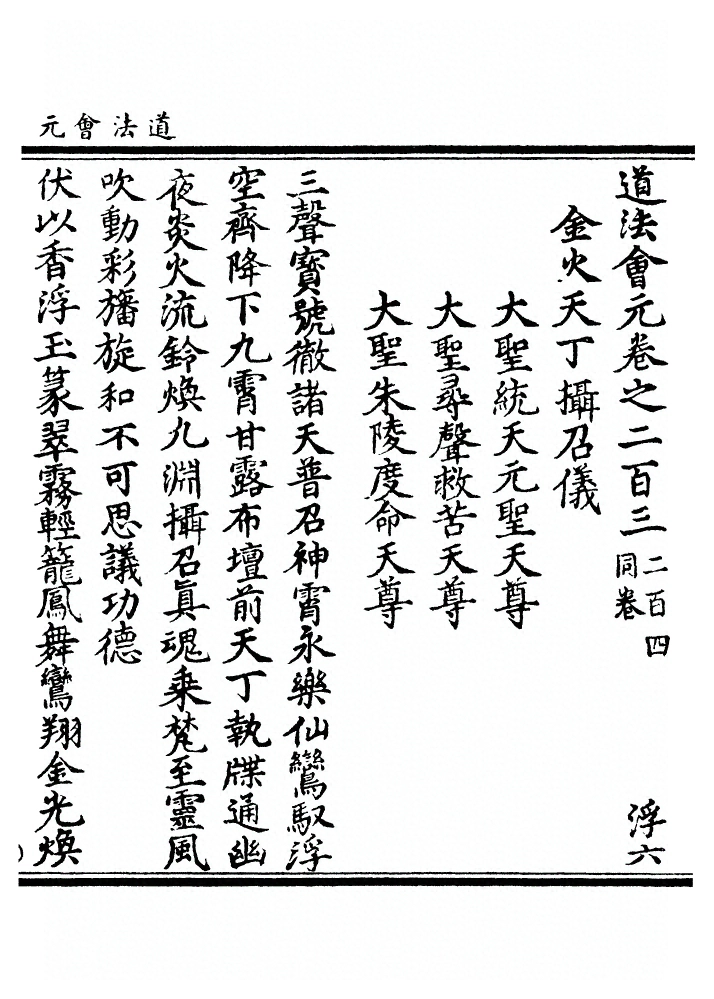 道法會元
道法會元卷之二百三 二百四同卷 浮六
金火天丁攝召儀
大聖統天元聖天尊
大聖尋聲救苦天尊
大聖朱陵度命天尊
三聲寶號徹諸天普召神霄永樂仙鸞馭浮
空齊降下九霄甘露布壇前天丁執牒通幽
夜炎火流鈴煥九淵攝召眞魂乗梵至靈風
吹動彩旛旋和不可思議功德
伏以香浮玉篆翠霧輕籠鳳舞鸞翔金光煥